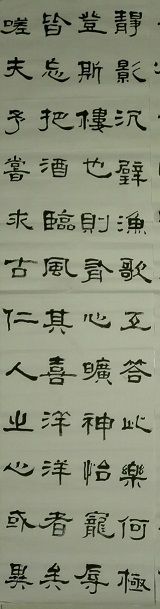 靜影沉璧漁歌互答此樂何極
登斯樓也則有心曠神怡寵辱
皆忘把酒臨風其喜洋洋者矣
嗟夫予嘗求古仁人之心或異